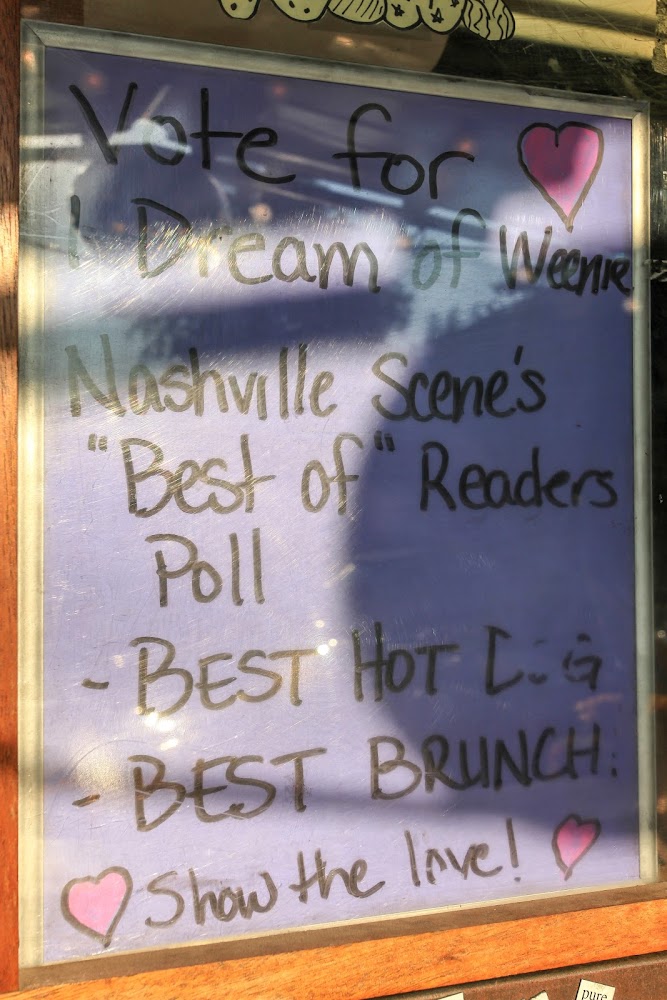 Vote for
I Dream of Weenie
Nashville Scene's
"Best of" Readers
Poll
- BEST HOT DOG
- BEST BRUNCH!
Show the love!
pure